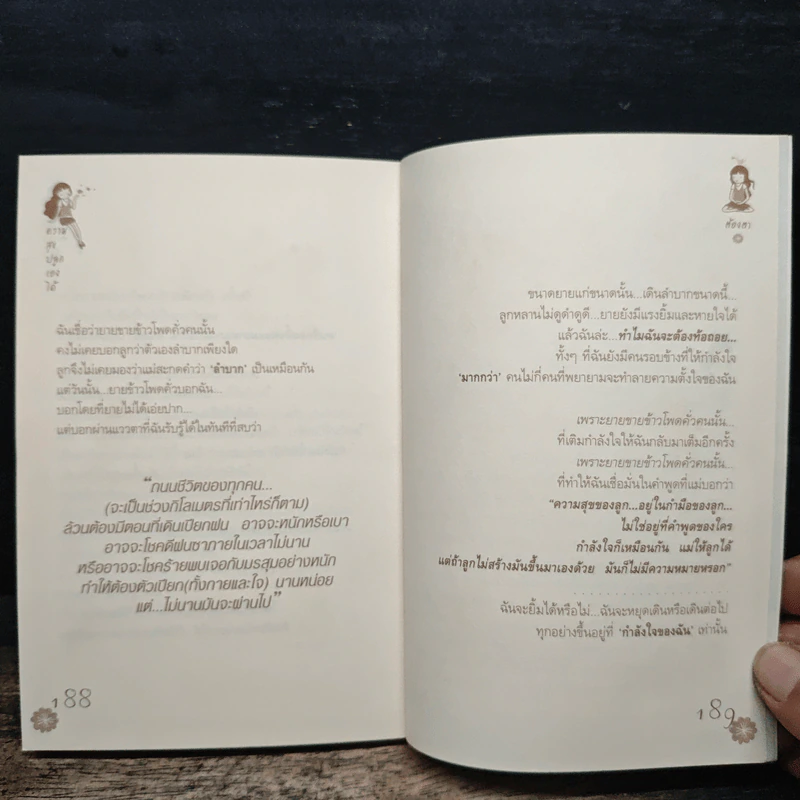 ความ
สุข
ปลูก
เอง
ได้
ฉันเชื่อว่ายายขายข้าวโพดคั่วคนนั้น
คงไม่เคยบอกลูกว่าตัวเองลำบากเพียงใด
ลูกจึงไม่เคยมองว่าแม่สะกดคำว่า ‘ลำบาก’ เป็นเหมือนกัน
แต่วันนั้น...ยายข้าวโพดคั่วบอกฉัน...
บอกโดยที่ยายไม่ได้เอ่ยปาก...
แต่บอกผ่านแววตาที่ฉันรับรู้ได้ในทันทีที่สบว่า
“ถนนชีวิตของทุกคน...
(จะเป็นช่วงกิโลเมตรที่เท่าไหร่ก็ตาม)
ล้วนต้องมีตอนที่เดินเปียกฝน อาจจะหนักหรือเบา
อาจจะโชคดีฝนซาภายในเวลาไม่นาน
หรืออาจจะโชคร้ายพบเจอกับมรสุมอย่างหนัก
ทำให้ต้องตัวเปียก(ทั้งกายและใจ) นานหน่อย
แต่...ไม่นานมันจะผ่านไป”
188
ต้องตา
ขนาดยายแก่ขนาดนั้น...เดินลำบากขนาดนี้...
ลูกหลานไม่ดูดำดูดี...ยายยังมีแรงยิ้มและหายใจได้
แล้วฉันล่ะ...ทำไมฉันจะต้องท้อถอย...
ทั้งๆ ที่ฉันยังมีคนรอบข้างที่ให้กำลังใจ
‘มากกว่า’ คนไม่กี่คนที่พยายามจะทำลายความตั้งใจของฉัน
เพราะยายขายข้าวโพดคั่วคนนั้น...
ที่เติมกำลังใจให้ฉันกลับมาเต็มอีกครั้ง
เพราะยายขายข้าวโพดคั่วคนนั้น...
ที่ทำให้ฉันเชื่อมั่นในคำพูดที่แม่บอกว่า
“ความสุขของลูก...อยู่ในกำมือของลูก...
ไม่ใช่อยู่ที่คำพูดของใคร
กำลังใจก็เหมือนกัน แม่ให้ลูกได้
แต่ถ้าลูกไม่สร้างมันขึ้นมาเองด้วย มันก็ไม่มีความหมายหรอก”
. . . . . . . . . . . . . . . . . . . .
ฉันจะยิ้มได้หรือไม่...ฉันจะหยุดเดินหรือเดินต่อไป
ทุกอย่างขึ้นอยู่ที่ ‘กำลังใจของฉัน’ เท่านั้น
189